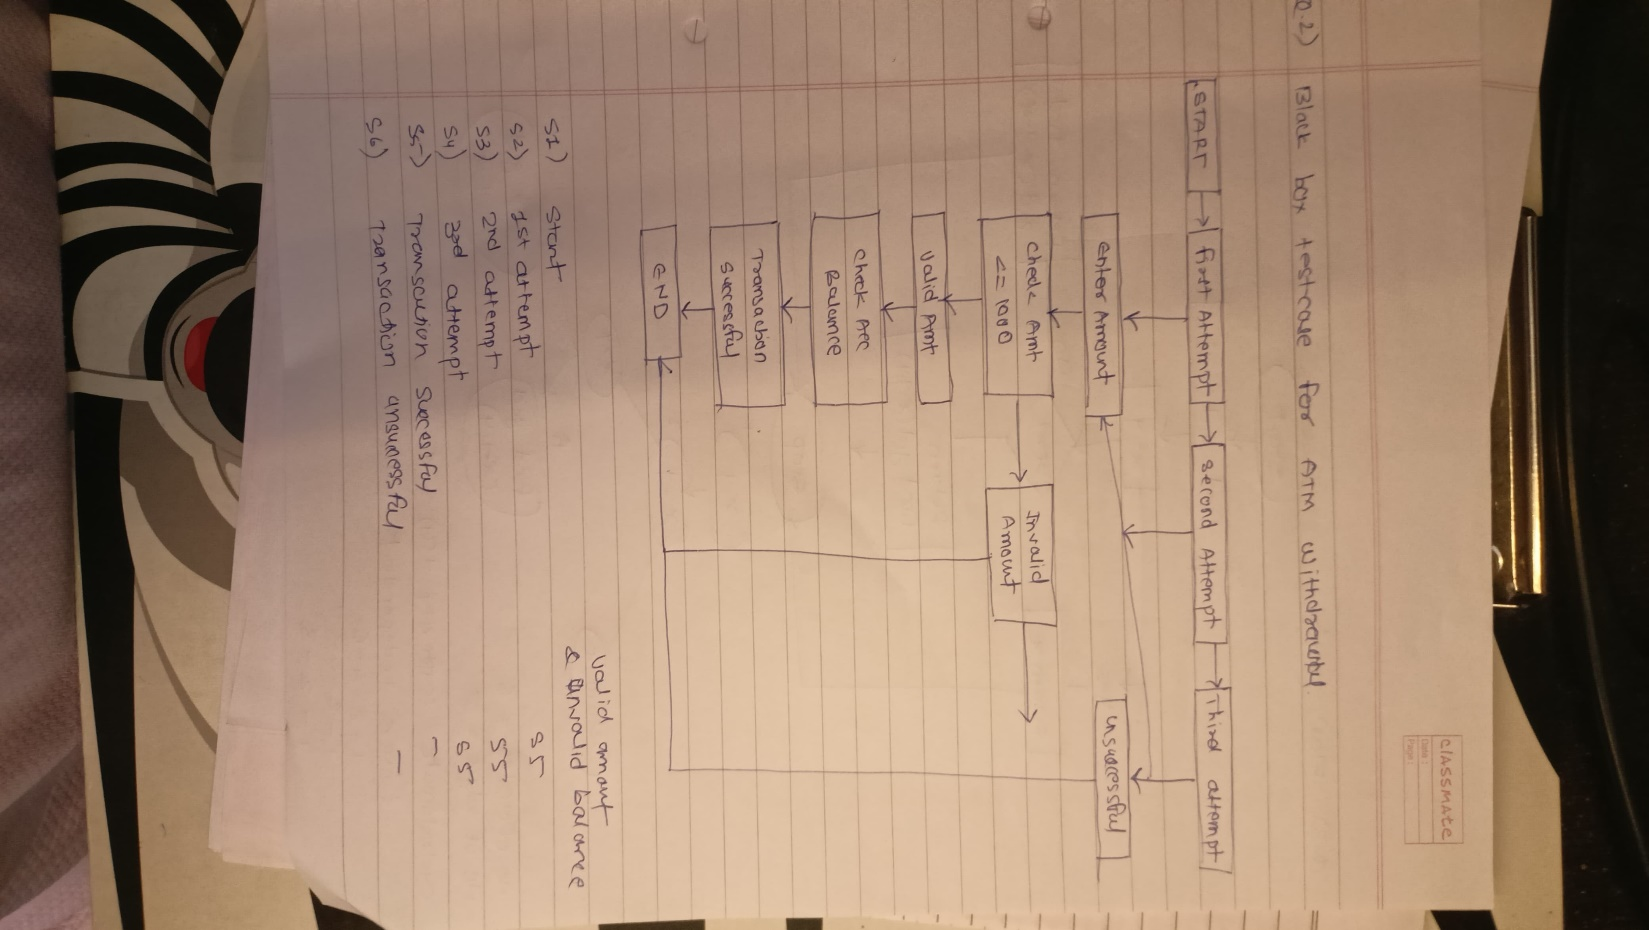 classmate
Date :
Page :
Q.2) Black box testcase for ATM withdrawal.
START
first Attempt
second Attempt
Third attempt
enter Amount
unsuccessful
check Amt
<= 1000
Invalid
Amount
Valid Amt
check Acc
Balance
Transaction
successful
END
Valid amount
& invalid balance
S1) Start S5
S2) 1st attempt S5
S3) 2nd attempt S5
S4) 3rd attempt –
S5) Transaction successful –
S6) Transaction unsuccessful